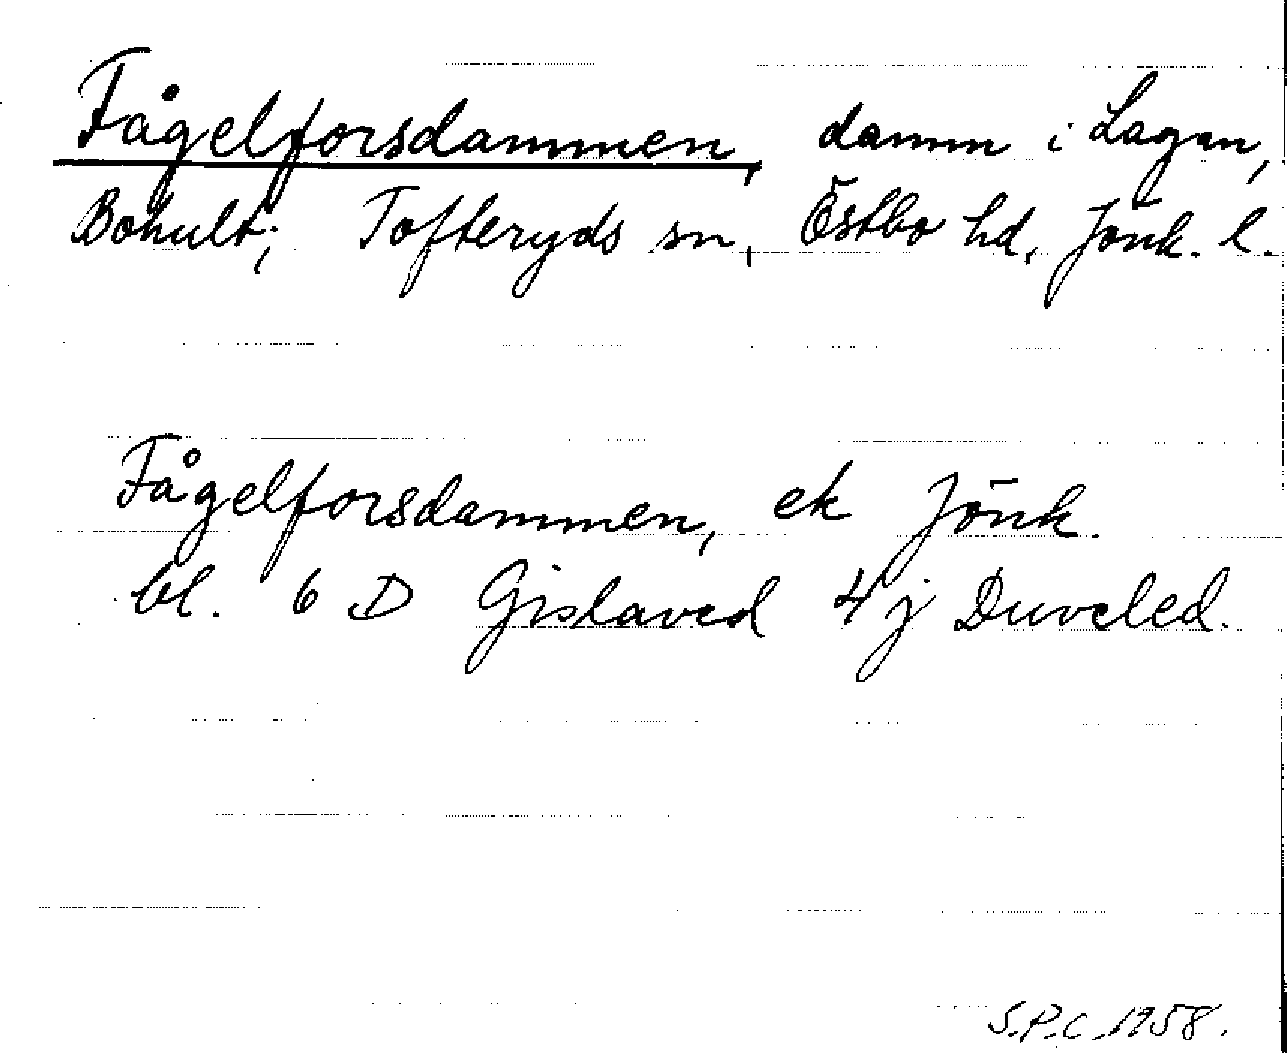 Fågelforsdammen, damm i Lagan,
Bohult; Tofteryds sn, Östbo hd, Jönk. l.
Fågelforsdammen, ek Jönk.
bl. 6 D Gislaved 4 j Duveled.
S.P.C 1958.